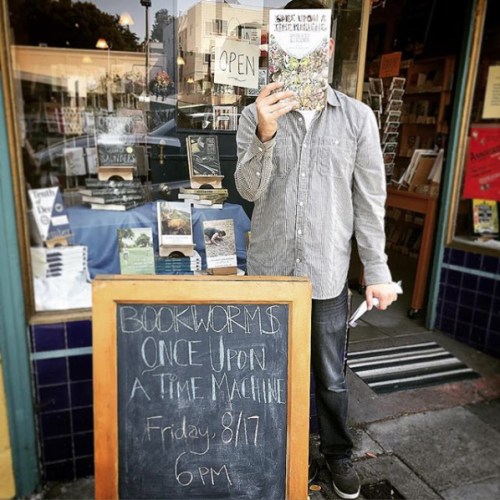 ONCE UPON
A TIME MACHINE
OPEN
BOOKWORMS
ONCE UPON
A TIME MACHINE
Friday, 8/17
6 PM